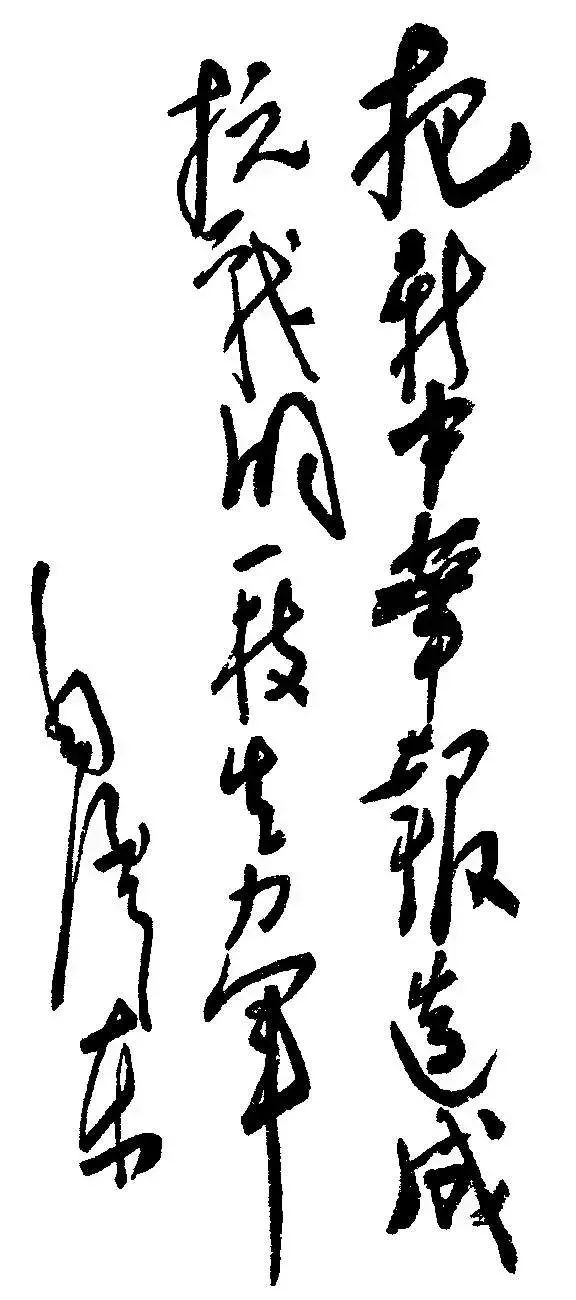 把新中華報造成
抗战的一枝生力军
毛澤东